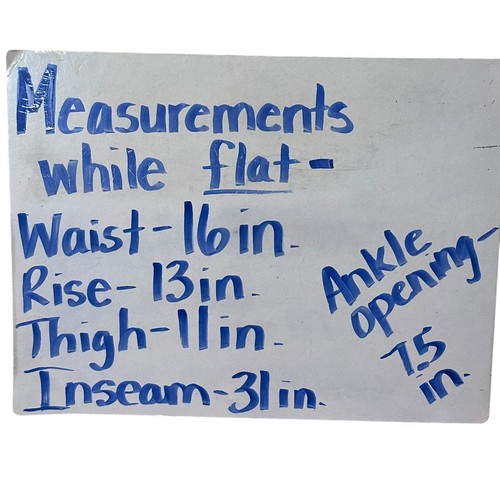 Measurements
while flat-
Waist-16in.
Rise-13in.
Thigh-11in.
Inseam-31in.
Ankle
opening-
7.5
in.